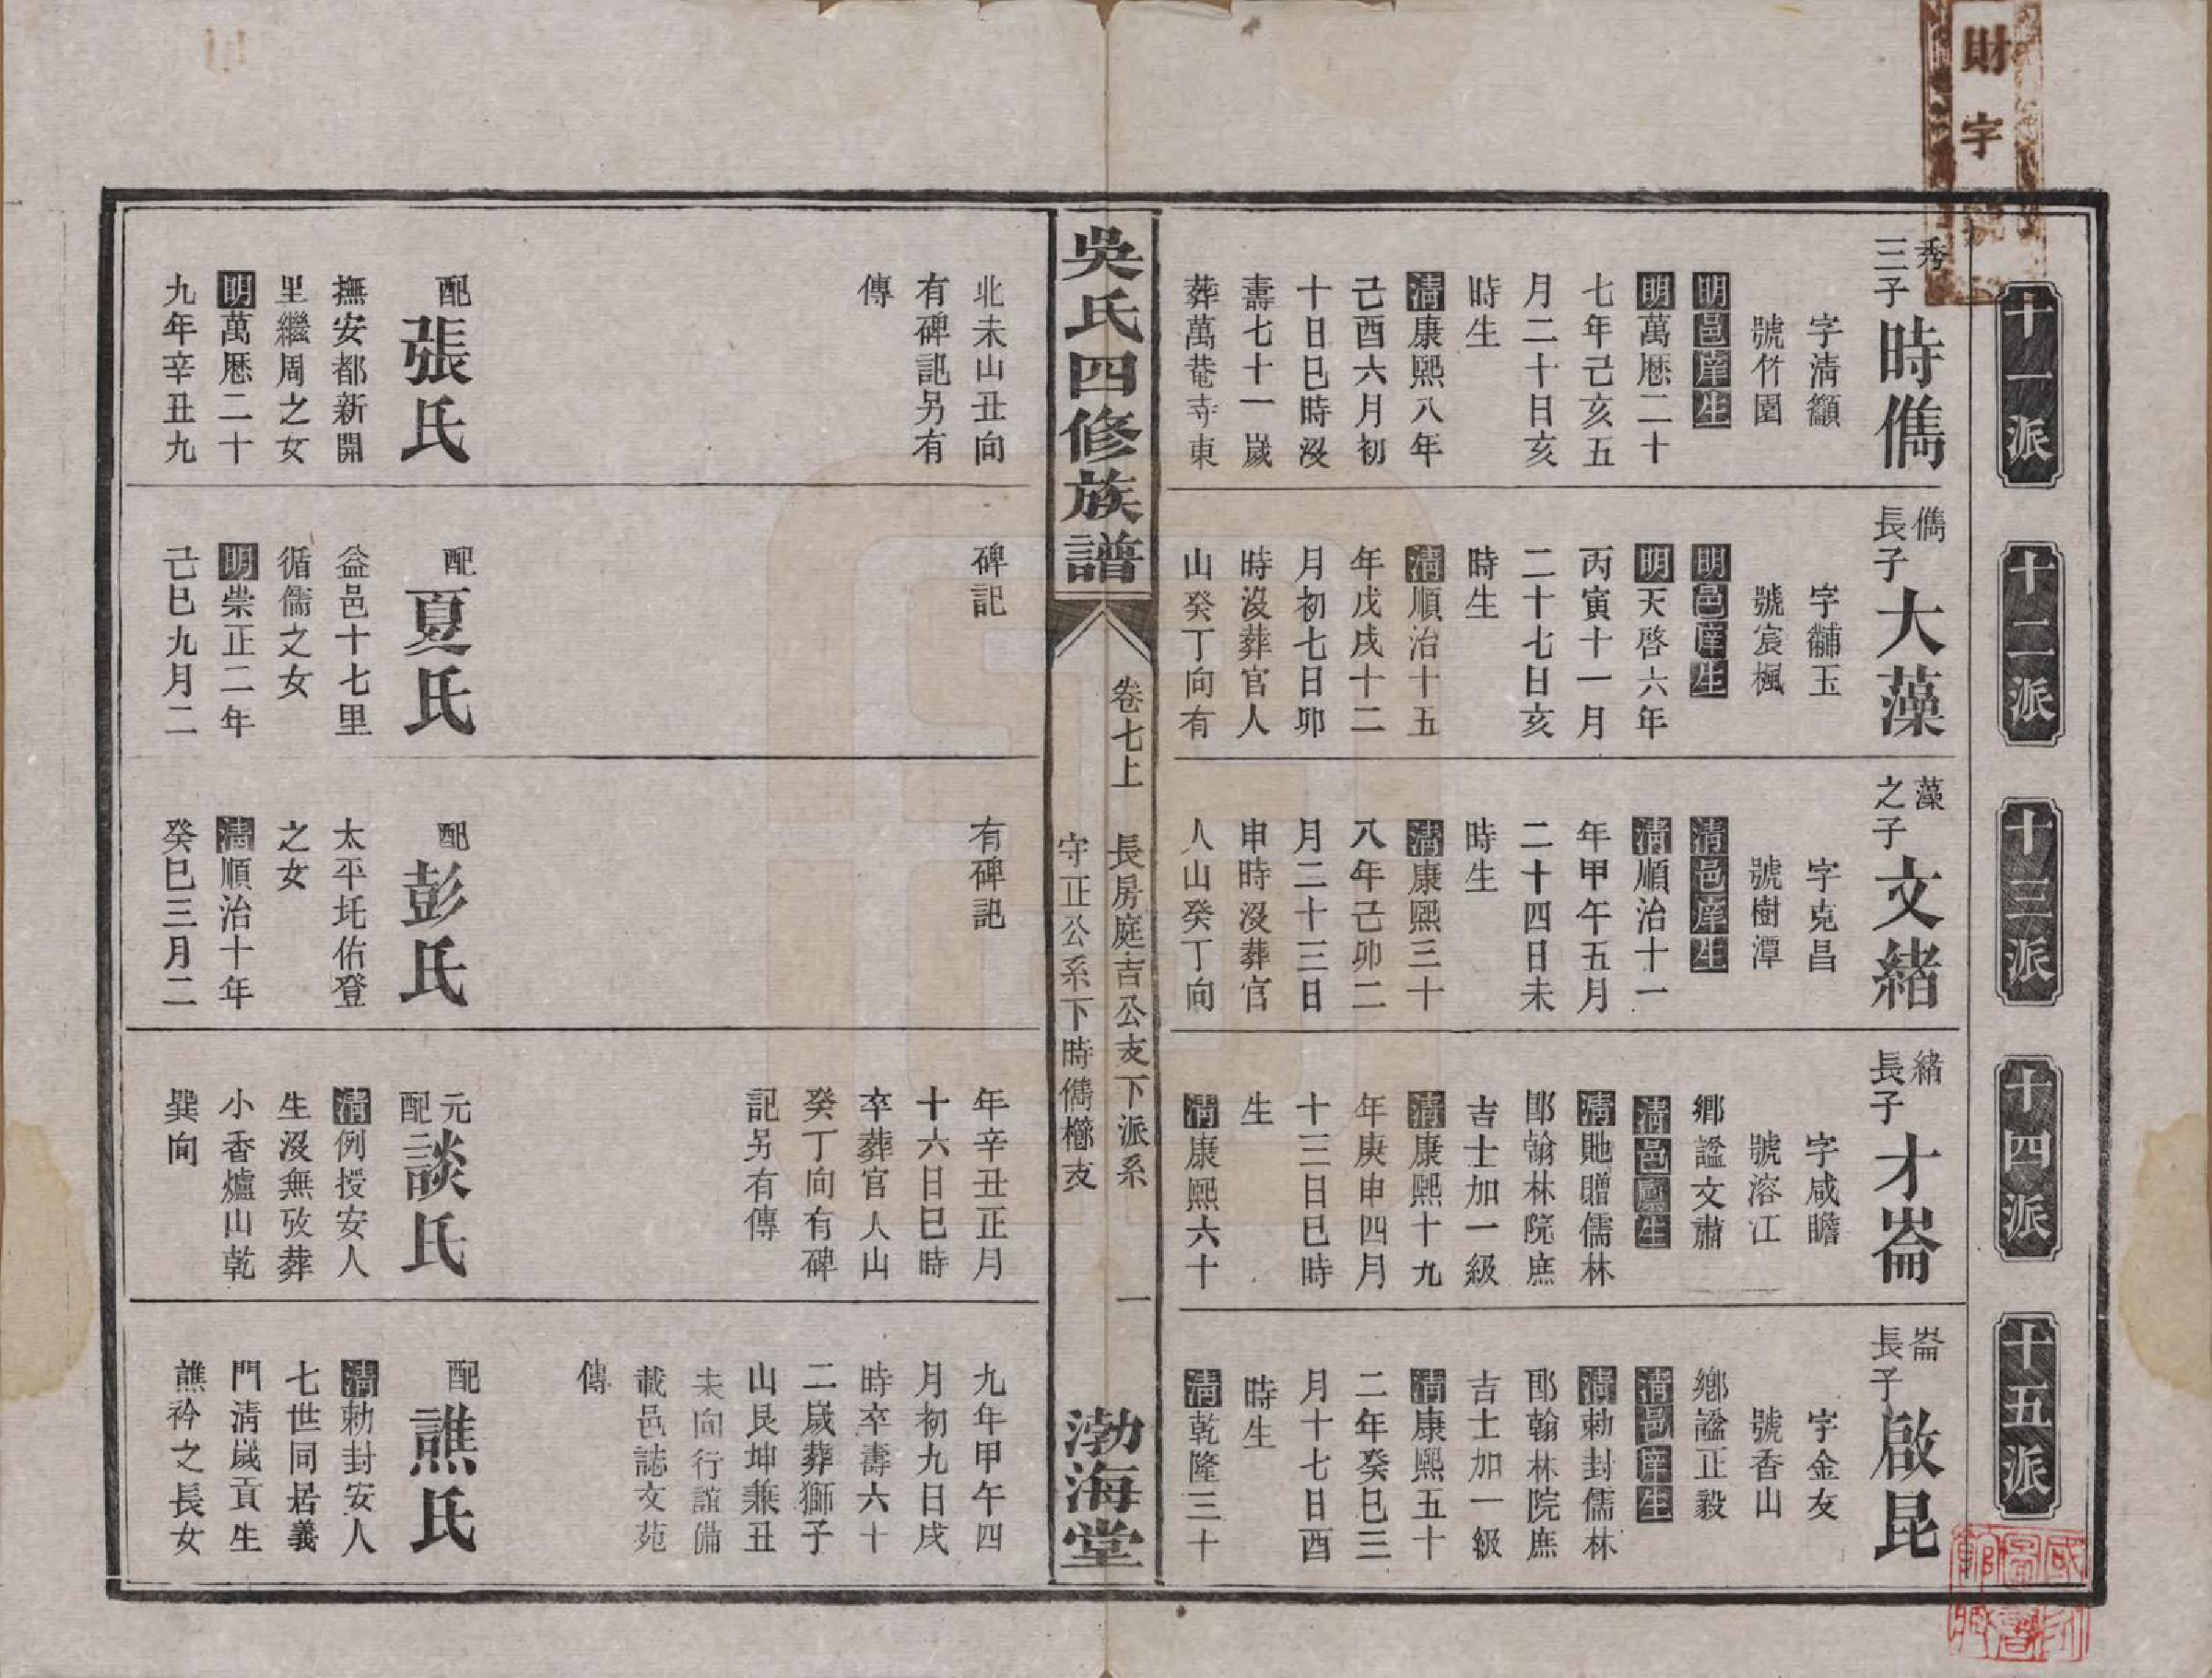 財字號
十一派
秀三子時儁
字清籟
號竹園
明邑庠生
明萬厯二十
七年己亥五
月二十日亥
時生
清康熙八年
己酉六月初
十日巳時沒
壽七十一歲
葬萬菴寺東
北未山丑向
有碑記另有
傳
配張氏
撫安都新開
里繼周之女
明萬厯二十
九年辛丑九
十二派
儁長子大藻
字黼玉
號宸楓
明邑庠生
明天啓六年
丙寅十一月
二十七日亥
時生
清順治十五
年戊戌十二
月初七日卯
時沒葬官人
山癸丁向有
碑記
配夏氏
益邑十七里
循儒之女
明崇正二年
己巳九月二
十三派
藻之子文緒
字克昌
號樹潭
清邑庠生
清順治十一
年甲午五月
二十四日未
時生
清康熙三十
八年己卯二
月二十三日
申時沒葬官
人山癸丁向
有碑記
配彭氏
太平圫佑登
之女
清順治十年
癸巳三月二
十四派
緒長子才崙
字咸瞻
號溶江
鄉諡文肅
清邑廩生
清貤贈儒林
郎翰林院庶
吉士加一級
清康熙十九
年庚申四月
十三日巳時
生
清康熙六十
年辛丑正月
十六日巳時
卒葬官人山
癸丁向有碑
記另有傳
元配談氏
清例授安人
生沒無攷葬
小香爐山乾
巽向
十五派
崙長子啟昆
字金友
號香山
鄉諡正毅
清邑庠生
清勅封儒林
郎翰林院庶
吉士加一級
清康熙五十
二年癸巳三
月十七日酉
時生
清乾隆三十
九年甲午四
月初九日戌
時卒壽六十
二歲葬獅子
山艮坤兼丑
未向行誼備
載邑誌文苑
傳
配譙氏
清勅封安人
七世同居義
門清歲貢生
譙衿之長女
吳氏四修族譜
卷七上
長房庭吉公支下派系
守正公系下時儁櫤支
一
渤海堂